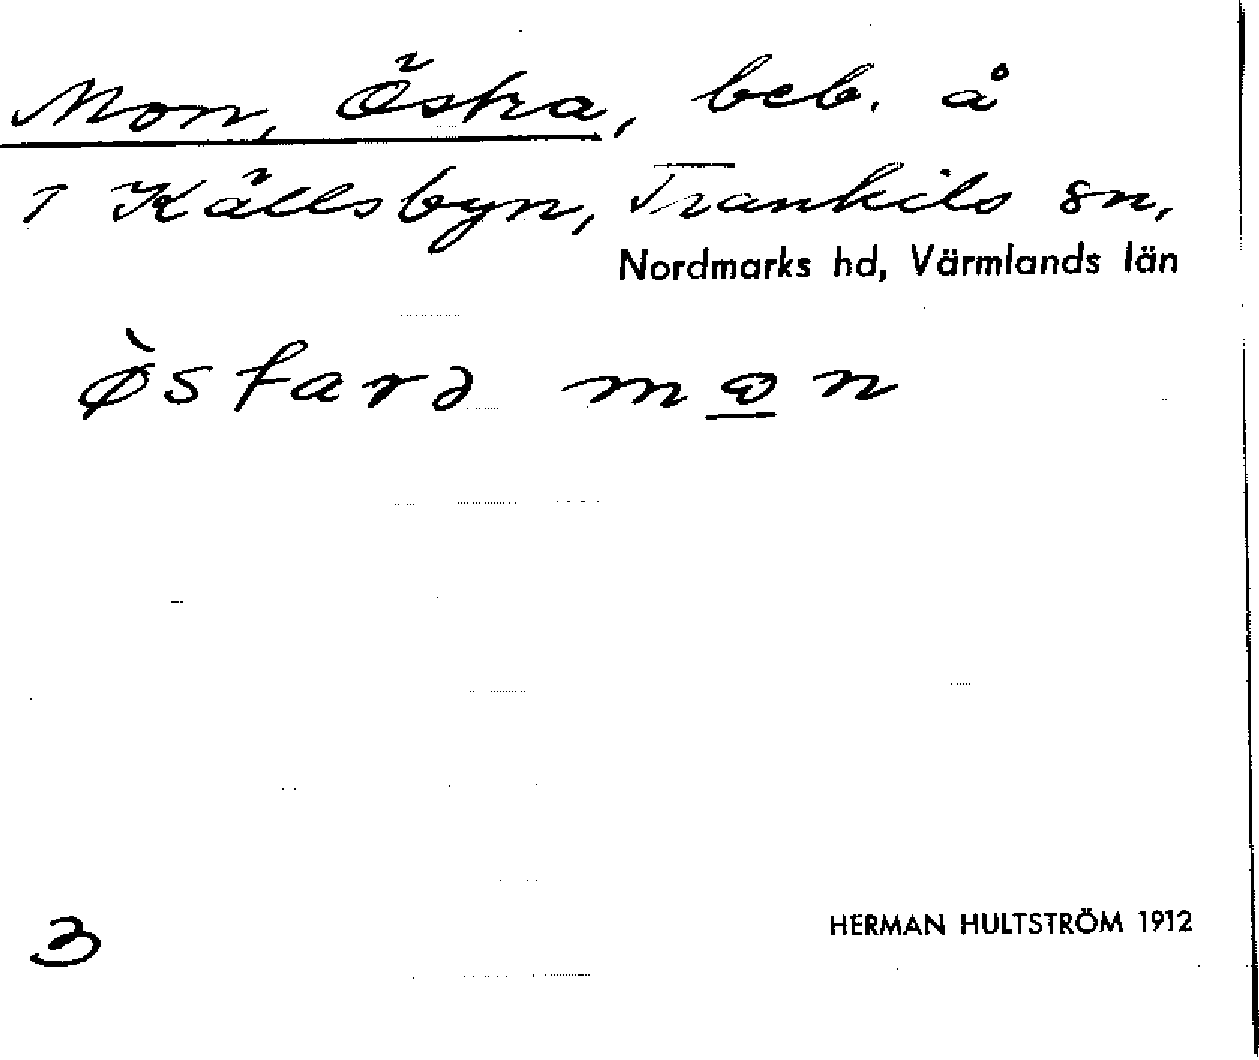 Mon, Östra, beb. å
1 Källsbyn, Trankils sn,
Nordmarks hd, Värmlands län
ø̀starə mon
3
HERMAN HULTSTRÖM 1912